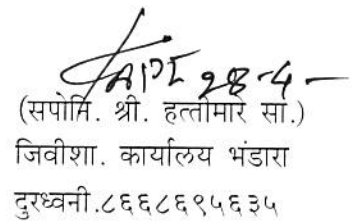 API 28-4-
(सपोनि. श्री. हत्तीमारे सा.)
जिवीशा. कार्यालय भंडारा
दुरध्वनी.८६६८६९५६३५